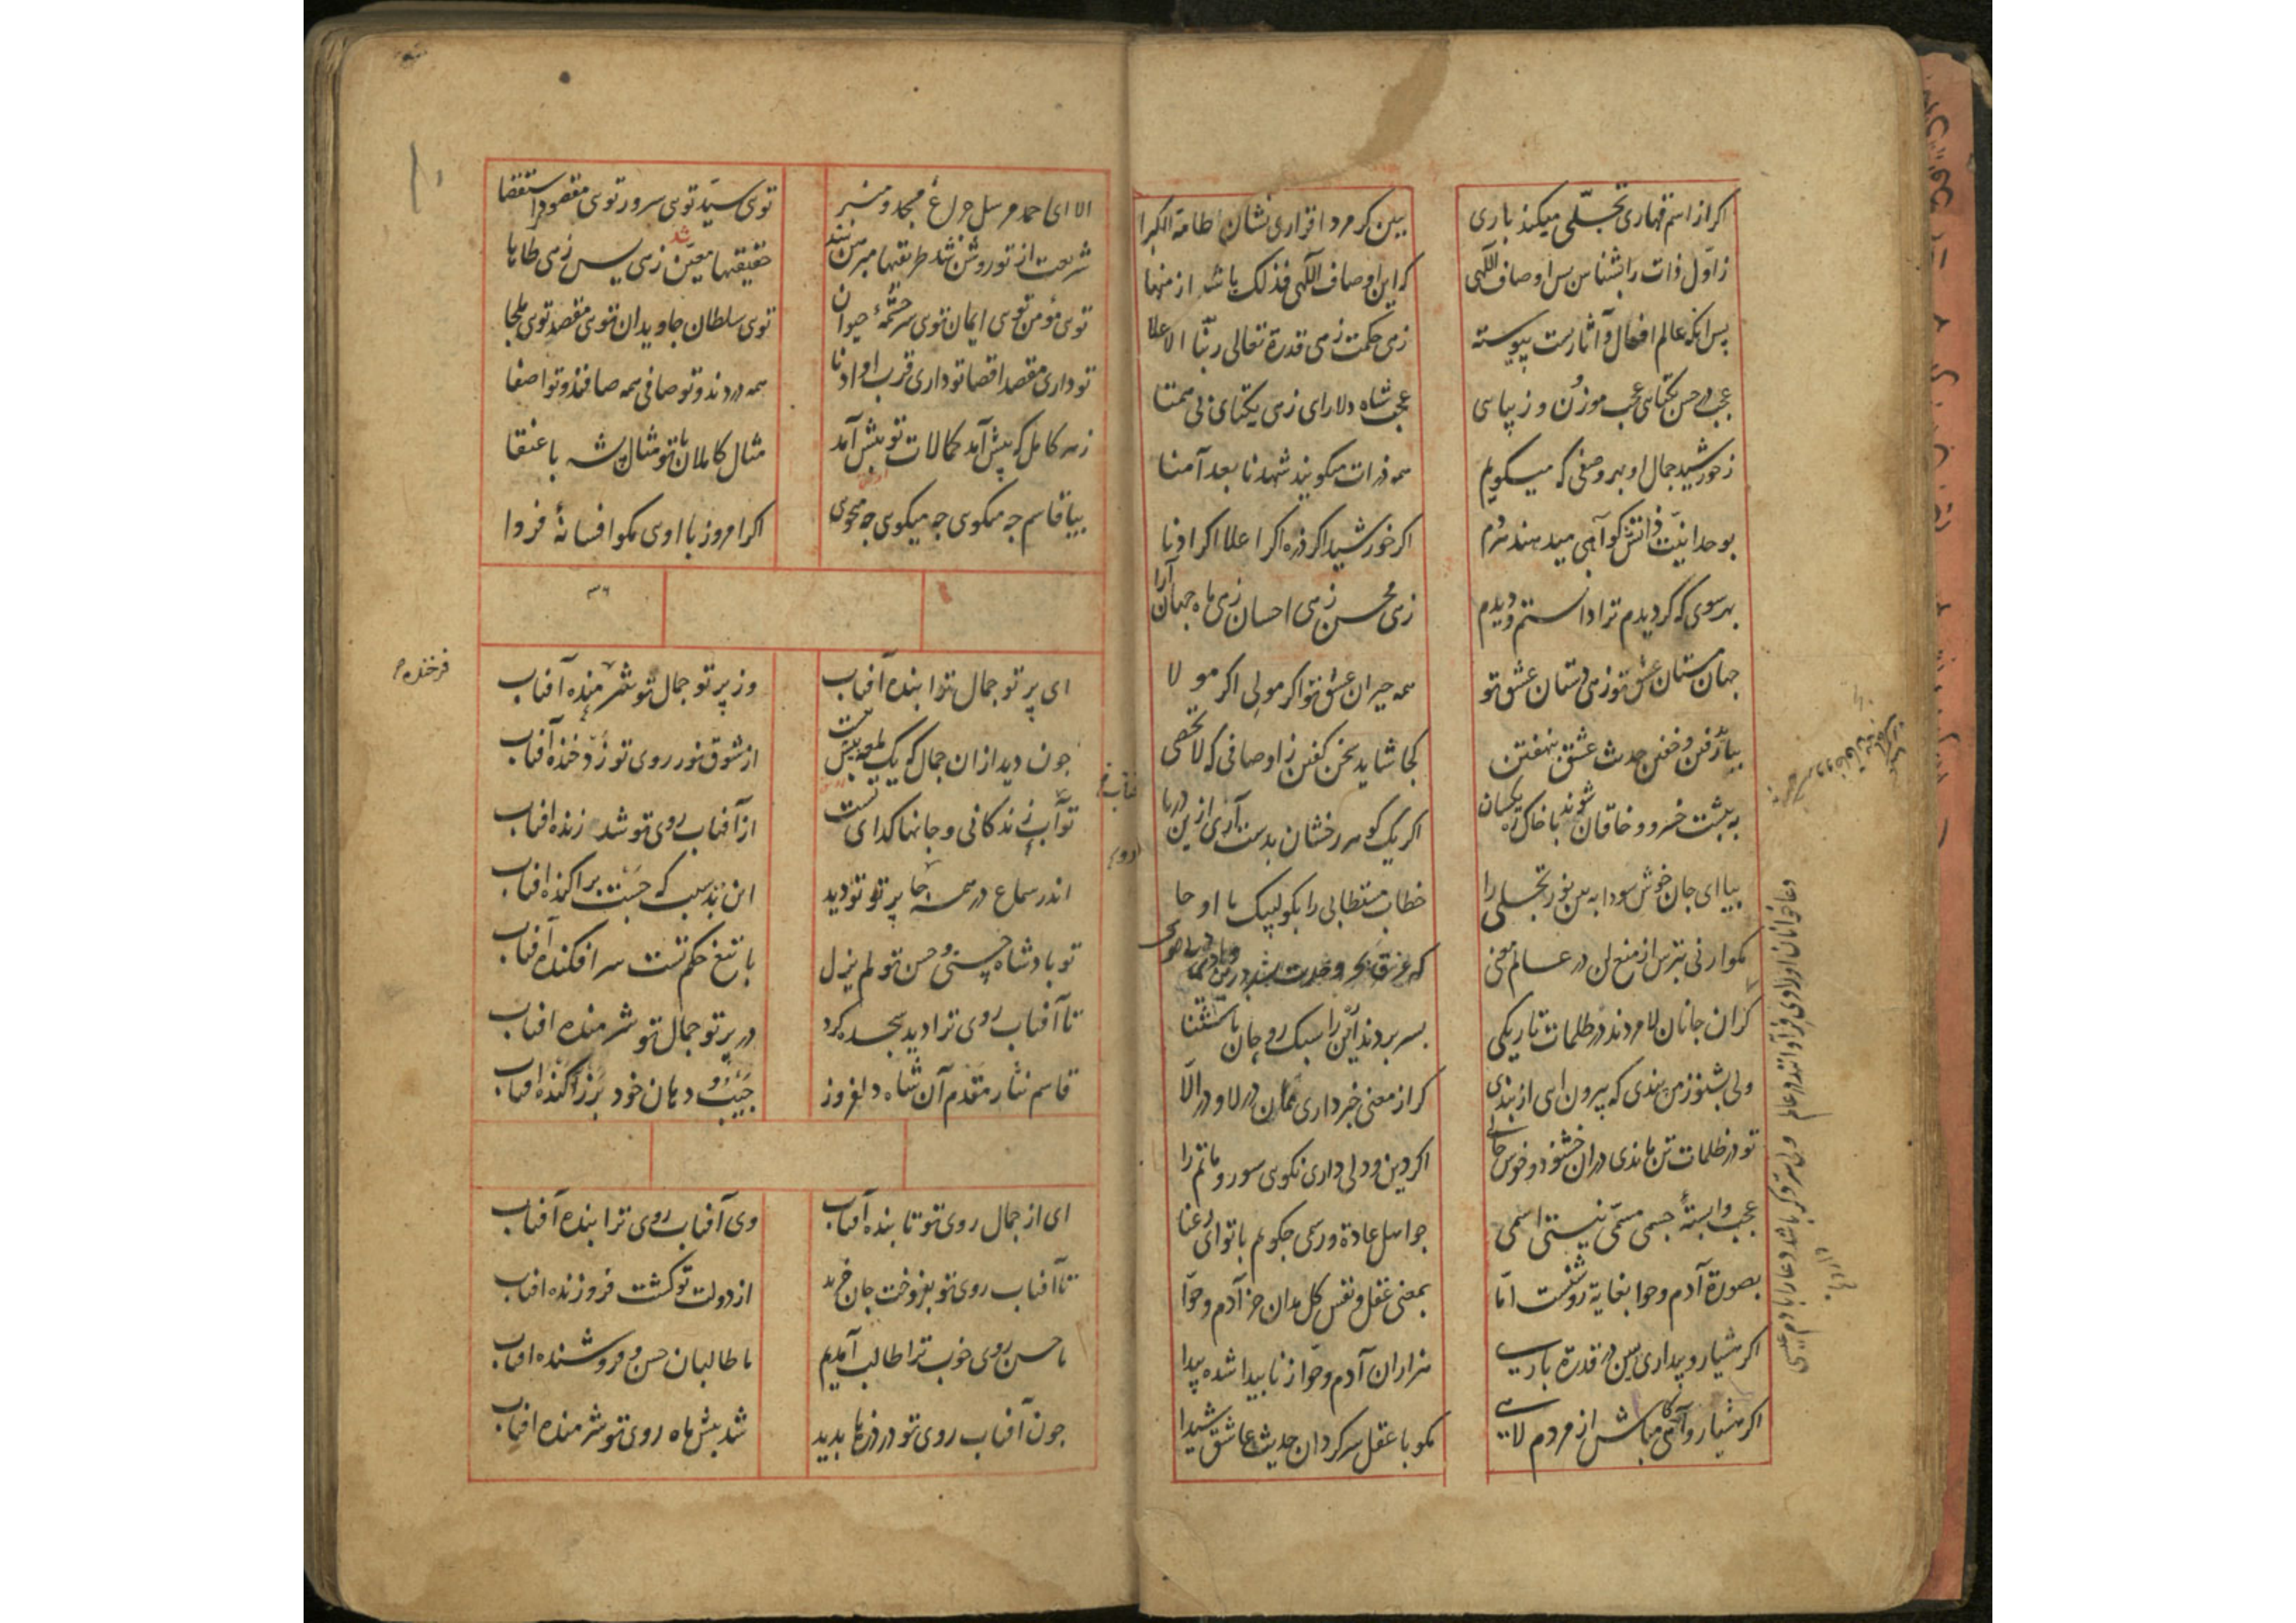 اکر از اسم قهاری تجلّی میکند باری
ببین کر مرد اقراری نشان طامة الکبرا
ز اوّل ذات را بشناس پس اوصاف اللّهی
کر این اوصاف اللّهی فذلک باشد از منها
پس انکه عالم افعال و آثارست پیوسته
زهی حکمت زهی قدرة تعالی ربّنا الاعلا
عجب در حسن یکتاسی عجب موزن و زیباسی
عجب شاه دلارای زهی یکتای بی همتا
ز خورشید جمال او بهر وصفی که میکویم
همه ذرات میکویند شهدنا بعد آمنا
بوحدانیّت ذاتش کوآهی میدهند مردم
اکر خورشید اکر ذره اکر اعلا اکر ادنا
بهر سوی که کردیدم ترا دانستم و دیدم
زهی محسن زهی احسان زهی ماه جهان آرا
جهان مستان عشق تو زهی دستان عشق تو
همه حیران عشق تو اکر مولی اکر مولا
حدیث عشق بنهفتن
کجا شاید سخن کفتن ز اوصافی که لا تحصی
خسرو و خاقان شوند با خاک ره یکسان
اکر یک کوهر رخشان بدست آری ازین دریا
بیا ای جان خوش سودا به بین نور تجلی را
خطاب مستطابی را بکو لبیک ما اوحا
بکو ارنی مترس از منع لن در عالم معنی
که غرق بحر وحدت شد
کزان جانان لامردند در ظلمات تاریکی
بسر بردند این را سبک روحان باستثنا
ولی بشنو ز من پندی که بیرون ای از بندی
کر از معنی خبرداری ممان در لا و در الّا
تو در ظلمات تن ماندی دران خشنود و خوش حالی
اکر دین و دلی داری نکوی سور و ماتم را
عجب وابستۀ جسمی مسمّی نیستی اسمی
جو اهل عادة و رسمی جکویم با تو ای رعنا
بصورة آدم و حوا بغایة روشنست امّا
بمعنی عقل و نفس کل مدان جز آدم و حوّا
اکر هشیار و بیداری ببین در قدرة باری
هزاران آدم و حوّا ز ناپیدا شده پیدا
اکر هشیار و آکاهی مباش از مردم لاهی
مکو با عقل سرکردان حدیث عاشق شیدا
الا ای احمد مرسل جراغ مسجد و منبر
توی سیّد توی سرور توی مقصود استقصا
شریعت از تو روشن شد طریقتها مبرهن شد
حقیقتها معیّن شد زهی یس زهی طاها
توی مؤمن توی ایمان توی سرجشمۀ حیوان
توی سلطان جاویدان توی مقصد توی ملجا
تو داری مقصد اقصا تو داری قرب او ادنا
همه دردند و تو صافی همه صافند و تو اصفا
زهر کامل که پیش آمد کمالات تو بیش آمد
مثال کاملان با تو مثال پشه با عنقا
بیا قاسم جه میکوی جه میکوی جه میجوی
اکر امروز با اوی مکو افسانۀ فردا
۳۶
ای پرتو جمال ترا بنده آفتاب
وز پرتو جمال تو شرمنده آفتاب
فرخنده
جون دید ازان جمال که یک لمعه بیش نیست
از شوق نور روی تو زد خنده آفتاب
تو آب زندکانی و جانها کدای تست
از آفتاب روی تو شد زنده افتاب
اندر سماع در همه جا پرتو تو دید
این بد سبب که جست پراکنده افتاب
تو بادشاه حسنی و حسن تو لم یزل
با تیغ حکم تست سر افکنده آفتاب
تا آفتاب روی ترا دید سجده کرد
در پرتو جمال تو شرمنده افتاب
قاسم نثار مقدم آن شاه دلفروز
جیب و دهان خود بزر آکنده افتاب
ای از جمال روی تو تابنده آفتاب
وی آفتاب روی ترا بنده آفتاب
تا آفتاب روی تو بفروخت جان خرید
از دولت تو کشت فروزنده افتاب
ما حسن روی خوب ترا طالب آمدیم
ما طالبان حسن و فروشنده افتاب
جون آفتاب روی تو در ذرها بدید
شد پیش ماه روی تو شرمنده افتاب